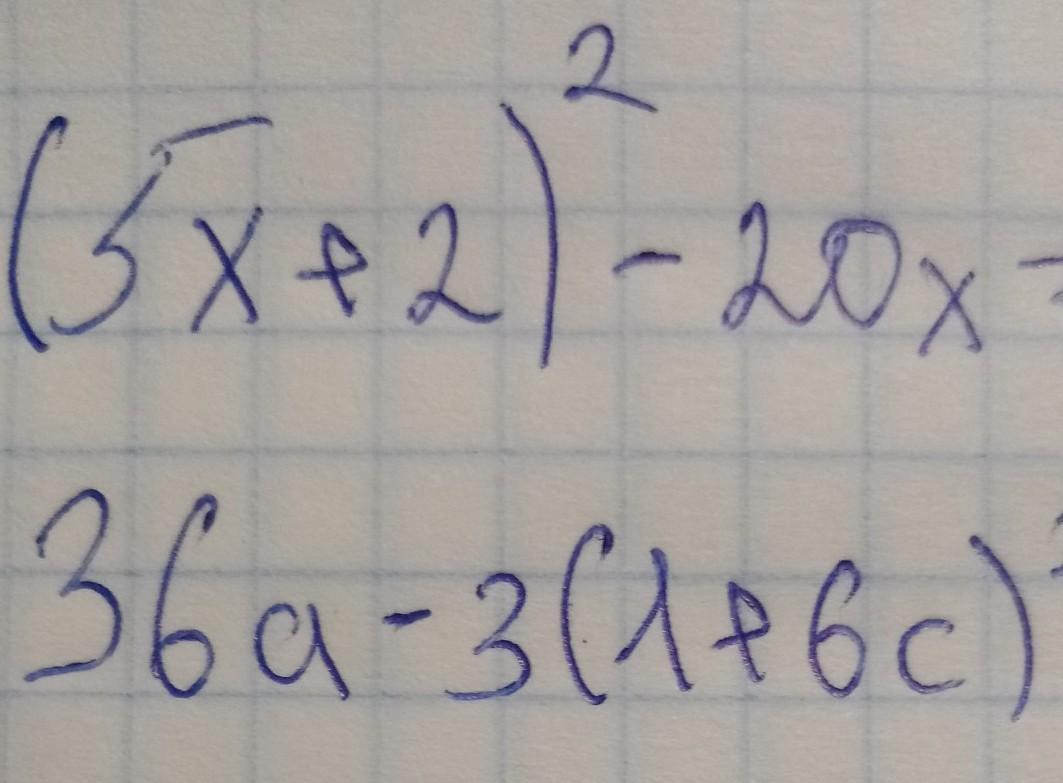 (5x+2)² - 20x
36a - 3(1+6c)